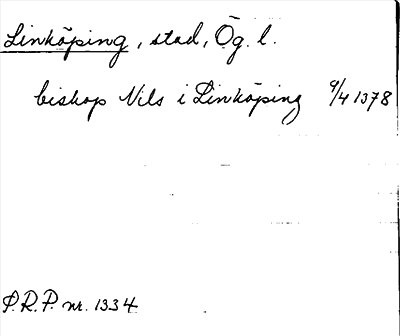 Linköping, stad, Ög. l.
biskop Nils i Linköping 9/4 1378
P.R.P. nr. 1334